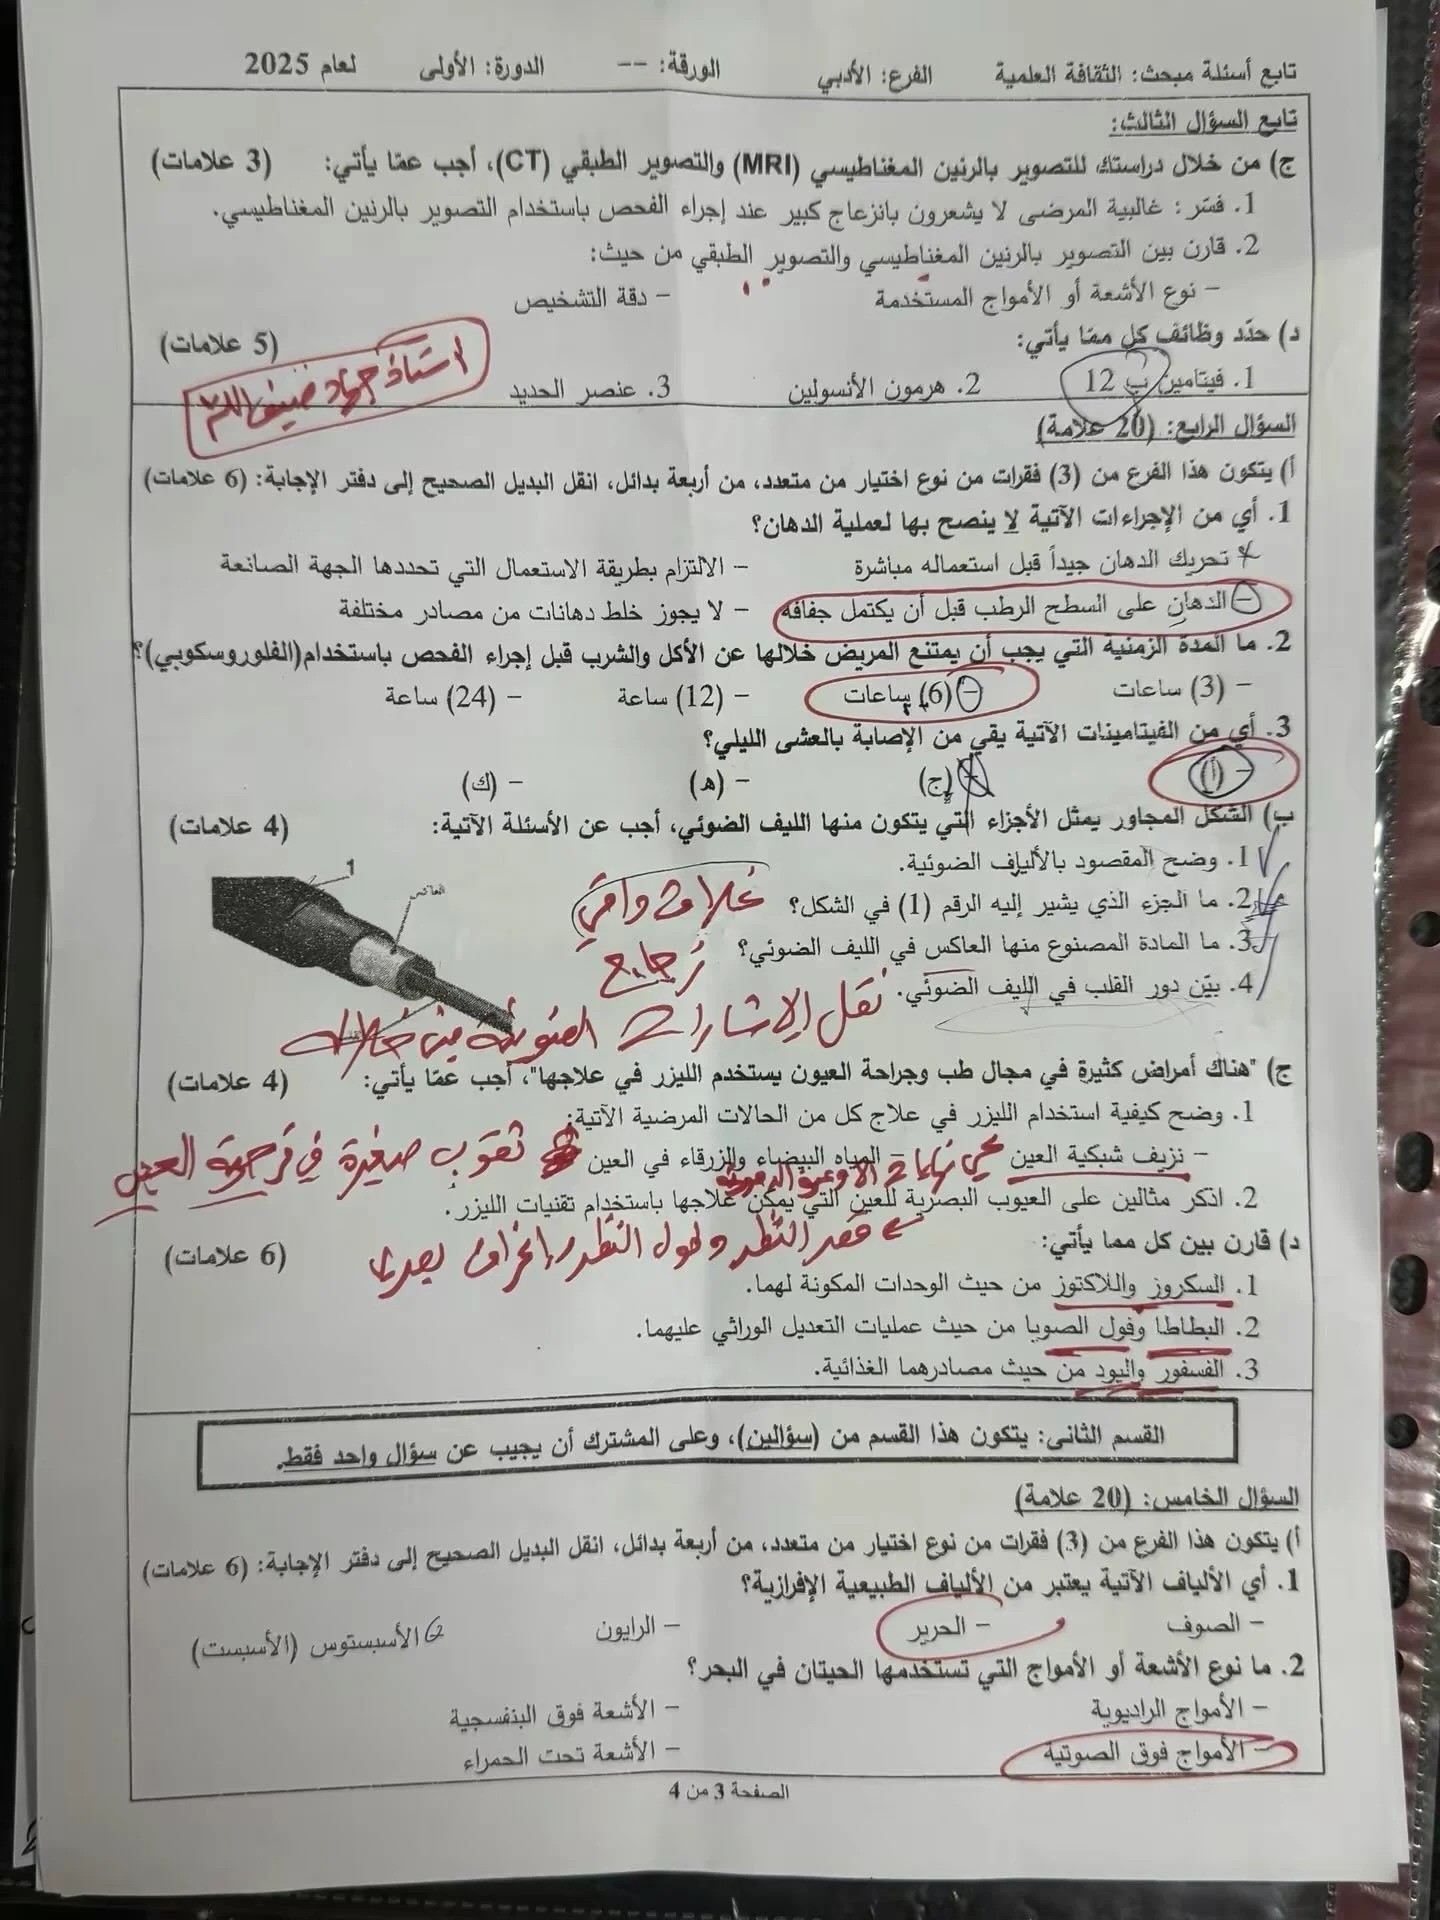 تابع أسئلة مبحث: الثقافة العلمية الفرع: الأدبي الورقة: -- الدورة: الأولى لعام 2025
تابع السؤال الثالث:
ج) من خلال دراستك للتصوير بالرنين المغناطيسي (MRI) والتصوير الطبقي (CT)، أجب عمّا يأتي: (3 علامات)
1. فسّر: غالبية المرضى لا يشعرون بانزعاج كبير عند إجراء الفحص باستخدام التصوير بالرنين المغناطيسي.
2. قارن بين التصوير بالرنين المغناطيسي والتصوير الطبقي من حيث:
- نوع الأشعة أو الأمواج المستخدمة - دقة التشخيص
د) حدّد وظائف كل ممّا يأتي: (5 علامات)
1. فيتامين ب 12 2. هرمون الأنسولين 3. عنصر الحديد
استاذ جهاد ضيف الله
السؤال الرابع: (20 علامة)
أ) يتكون هذا الفرع من (3) فقرات من نوع اختيار من متعدد، من أربعة بدائل، انقل البديل الصحيح إلى دفتر الإجابة: (6 علامات)
1. أي من الإجراءات الآتية لا ينصح بها لعملية الدهان؟
تحريك الدهان جيداً قبل استعماله مباشرة - الالتزام بطريقة الاستعمال التي تحددها الجهة الصانعة
- الدهان على السطح الرطب قبل أن يكتمل جفافه - لا يجوز خلط دهانات من مصادر مختلفة
2. ما المدة الزمنية التي يجب أن يمتنع المريض خلالها عن الأكل والشرب قبل إجراء الفحص باستخدام(الفلوروسكوبي)؟
- (3) ساعات - (6) ساعات - (12) ساعة - (24) ساعة
3. أي من الفيتامينات الآتية يقي من الإصابة بالعشى الليلي؟
- (أ) - (ج) - (هـ) - (ك)
ب) الشكل المجاور يمثل الأجزاء التي يتكون منها الليف الضوئي، أجب عن الأسئلة الآتية: (4 علامات)
1. وضح المقصود بالألياف الضوئية.
1
العاكس
2. ما الجزء الذي يشير إليه الرقم (1) في الشكل؟ غلاف واقي
3. ما المادة المصنوع منها العاكس في الليف الضوئي؟ زجاج
4. بيّن دور القلب في الليف الضوئي. نقل الإشارات الضوئية من خلاله
ج) "هناك أمراض كثيرة في مجال طب وجراحة العيون يستخدم الليزر في علاجها"، أجب عمّا يأتي: (4 علامات)
1. وضح كيفية استخدام الليزر في علاج كل من الحالات المرضية الآتية:
- نزيف شبكية العين كي نهايات الاوعية الدموية - المياه البيضاء والزرقاء في العين ثقوب صغيرة في قرحية العين
2. اذكر مثالين على العيوب البصرية للعين التي يمكن علاجها باستخدام تقنيات الليزر.
قصر النظر وطول النظر
د) قارن بين كل مما يأتي: (6 علامات)
1. السكروز واللاكتوز من حيث الوحدات المكونة لهما.
2. البطاطا وفول الصويا من حيث عمليات التعديل الوراثي عليهما.
3. الفسفور واليود من حيث مصادرهما الغذائية.
القسم الثاني: يتكون هذا القسم من (سؤالين)، وعلى المشترك أن يجيب عن سؤال واحد فقط.
السؤال الخامس: (20 علامة)
أ) يتكون هذا الفرع من (3) فقرات من نوع اختيار من متعدد، من أربعة بدائل، انقل البديل الصحيح إلى دفتر الإجابة: (6 علامات)
1. أي الألياف الآتية يعتبر من الألياف الطبيعية الإفرازية؟
- الصوف - الحرير - الرايون الأسبستوس (الأسبست)
2. ما نوع الأشعة أو الأمواج التي تستخدمها الحيتان في البحر؟
- الأمواج الراديوية - الأشعة فوق البنفسجية
- الأمواج فوق الصوتية - الأشعة تحت الحمراء
الصفحة 3 من 4